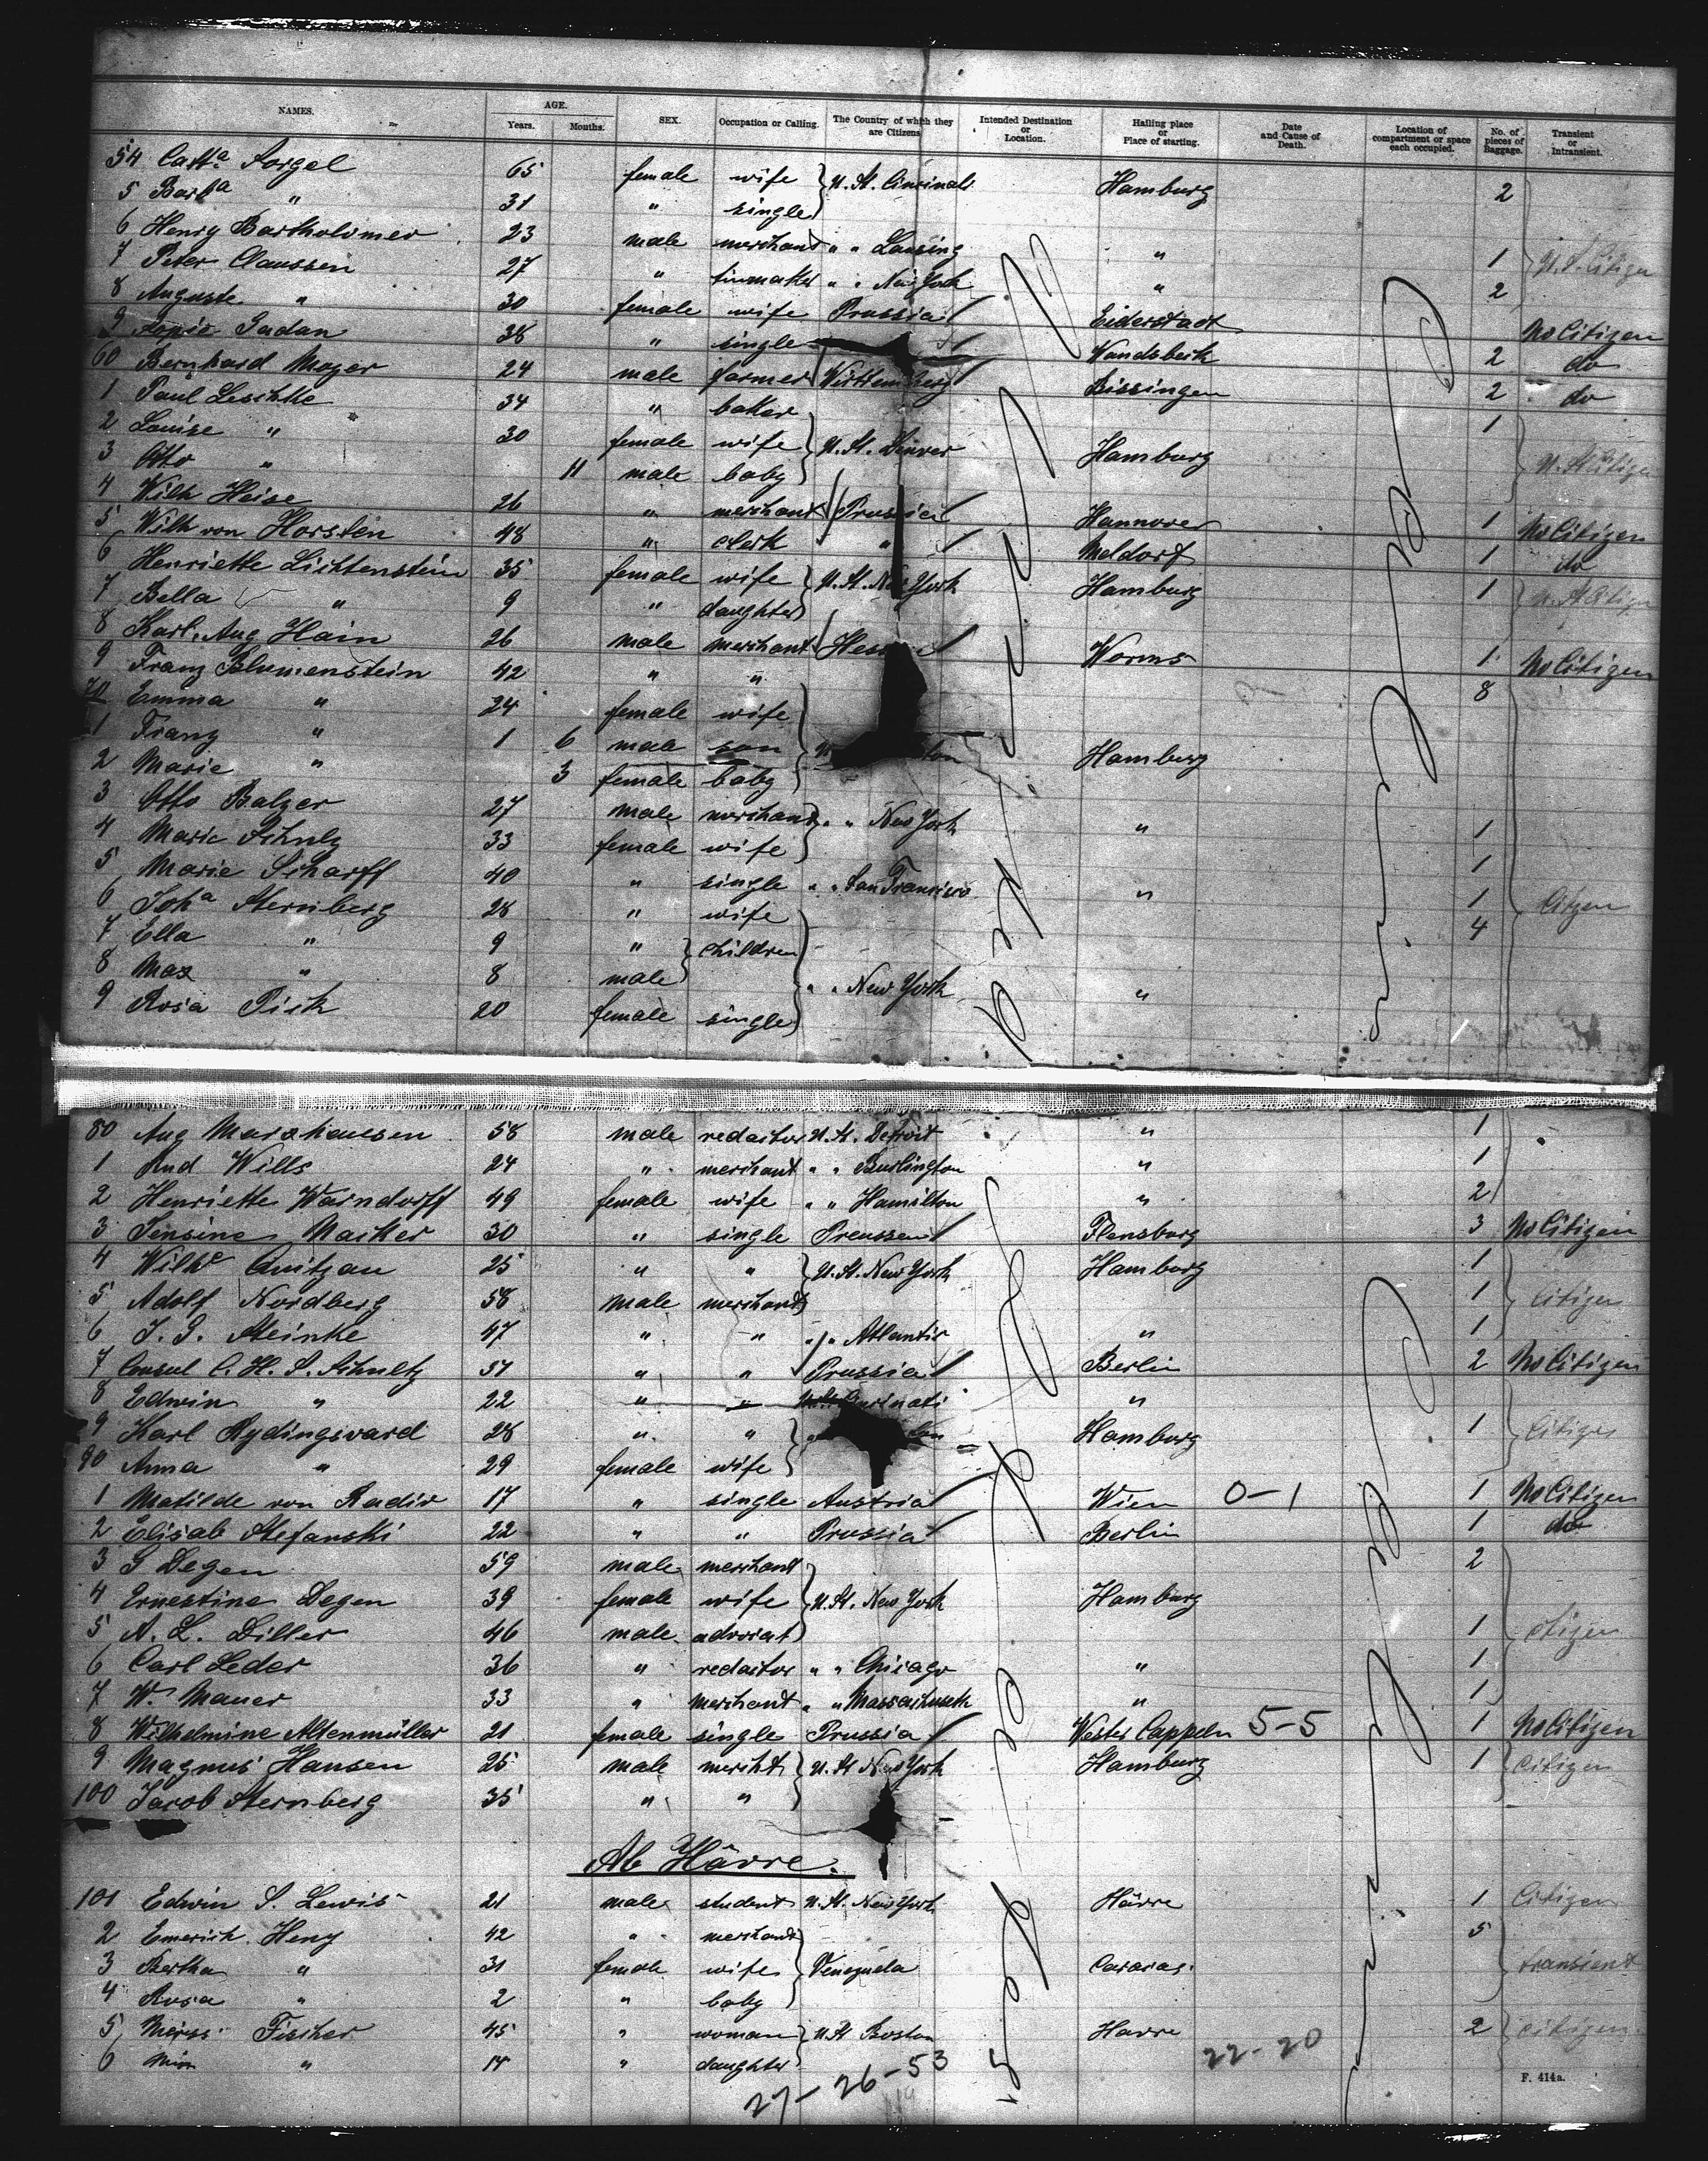 NAMES. AGE. Years. Months. SEX. Occupation or Calling. The Country of which they are Citizens. Intended Destination or Location. Hailing place or Place of starting. Date and Cause of Death. Location of compartment or space each occupied. No. of pieces of Baggage. Transient or Intransient.
54 Cath.a Sorgel 65 female wife } U. St. Cincinati Hamburg 2
5 Barb.a " 31 " single
6 Henry Bartholomer 23 male merchant " " Lansing " 1 U. S. Citizen
7 Peter Claussen 27 " " " New York " 2
8 Auguste " 30 female wife Prussia Eiderstadt No Citizen
9 38 " single Wandsbeck 2 do
60 Bernhard Mayer 24 male farmer Württemberg Bissingen 2 do
1 Paul Leschke 34 " baker 1
2 Louise " 30 female wife } U. St. Denver Hamburg U. St. Citizen
3 Otto " 11 male baby
4 Wilh Heise 26 " merchant Prussia Hannover 1 No Citizen
5 Wilh von Horsten 48 " clerk " Meldorf 1 do
6 Henriette Lichtenstein 35 female wife } U. St. New York Hamburg 1 U. St. Citizen
7 Bella " 9 " daughter
8 Karl. Aug Hain 26 male merchant Worms 1 No Citizen
9 Franz Blumenstein 42 " " 8
70 Emma " 24 female wife
1 Franz " 1 6 male son Hamburg
2 Marie " 3 female baby
3 Otto Balzer 27 male merchant } " " New York " 1
4 Marie Schulz 33 female wife 1
5 Marie Scharff 40 " single " " San Francisco " 1 Citizen
6 Joh.a Sternberg 28 " wife 4
7 Ella " 9 " } children
8 Max " 8 male } " " New York "
9 Rosa Pick 20 female single
80 Aug Marxhausen 58 male redactor U. St. Detroit " 1
1 Rud Wills 24 " merchant " " Burlington " 1
2 Henriette Warndorff 49 female wife " " Hamilton " 2
3 Jensine Maiker 30 " single Preussen Flensburg 3 No Citizen
4 Wilh.e Quitzau 25 " " } U. St. New York Hamburg 1
5 Adolf Nordberg 58 male merchant 1 citizen
6 J. G. Steinke 47 " " " " Atlantic " 1
7 Consul C. H. S. Schultz 51 " " Prussia Berlin 2 No Citizen
8 Edwin " 22 " " "
9 Karl Rydingsvard 28 " " Hamburg 1 Citizen
90 Anna " 29 female wife
1 Matilde von Radio 17 " single Austria Wien 0-1 1 No Citizen
2 Elisab Stefanski 22 " " Prussia Berlin 1 do
3 S Degen 59 male merchant 2
4 Ernestine Degen 39 female wife } U. St. New York Hamburg
5 A. L. Diller 46 male advocat 1 citizen
6 Carl Leder 36 " redactor " " Chicago " 1
7 W. Mauer 33 " merchant " " Massachusett " 1
8 Wilhelmine Altenmüller 21 female single Prussia Wester Cappeln 5-5 1 No Citizen
9 Magnus Hansen 25 male mercht } U. St New York Hamburg 1 Citizen
100 Jacob Sternberg 35 " "
Ab Hâvre.
101 Edwin S. Lewis 21 male student U. St. New York Hâvre 1 Citizen
2 Emerich Heny 42 " merchant 5
3 Bertha " 31 female wife } Venezuela Caracas. transient
4 Rosa " 2 " baby
5 Fischer 45 " woman } U. St Boston Havre 2 citizen
6 " 14 " daughter
27-26-53 22-20
F. 414a.